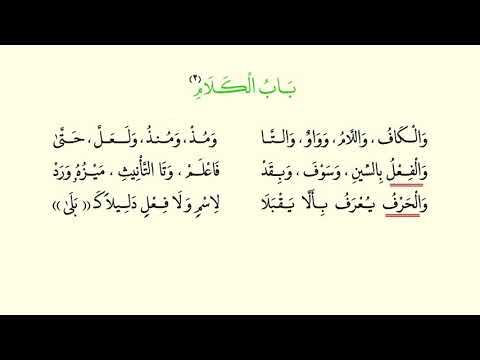 بَابُ الْكَلَامِ (٢)
وَالْكَافُ، وَاللَّامُ، وَوَاوٌ، وَالتَّا وَمُذْ، وَمُنذُ، وَلَعَلَّ، حَتَّىٰ
وَالْفِعْلُ بِالسِّينِ، وَسَوْفَ، وَبِقَدْ فَاعْلَمْ، وَتَا التَّأْنِيثِ، مَيْزُهُ وَرَدْ
وَالْحَرْفُ يُعْرَفُ بِأَلَّا يَقْبَلَا لِاسْمٍ وَلَا فِعْلٍ دَلِيلًا كَـ«بَلَىٰ»